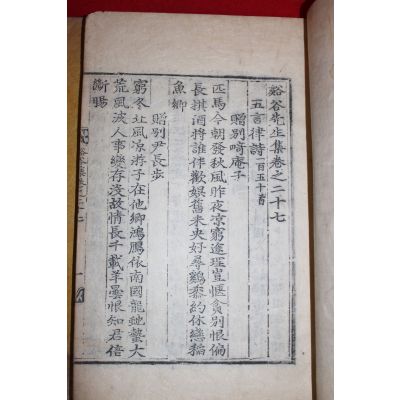 谿谷先生集卷之二十七
五言律詩 一百五十首
贈別畸庵子
匹馬今朝發秋風昨夜凉窮途理豈愜貧別恨偏
長棋酒將誰伴歡娛舊未央好尋鷄黍約休戀稻
魚鄉
贈別尹長步
窮冬北風凉游子在他鄉鴻鴈依南國龍虵蟄大
荒風波人事變存沒故情長千載羊曇恨知君倍
斷腸